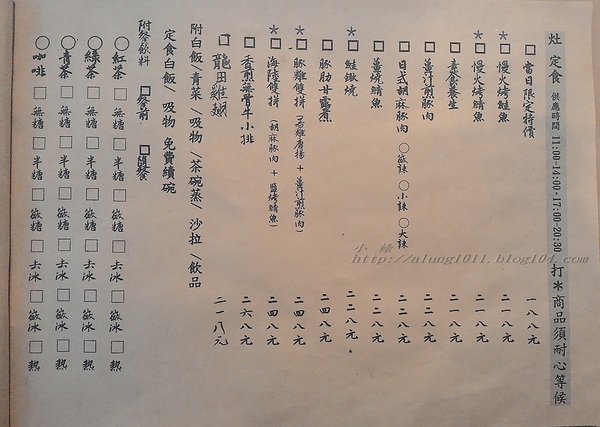 灶 定食 供應時間 11:00-14:00-17:00-20:30 打＊商品須耐心等候
□當日限定特價 一八八元
＊□慢火烤鮭魚 二一八元
＊□慢火烤鯖魚 二一八元
□素食養生 二一八元
□薑汁煎豚肉 二二八元
□日式胡麻豚肉 ○微辣 ○小辣 ○大辣 二二八元
□薑燒鯖魚 二二八元
＊□鮭鍬燒 二二八元
□豚肋甘露煮 二四八元
＊□豚雞雙拼（若雞唐揚＋薑汁煎豚肉） 二四八元
＊□海陸雙拼（胡麻豚肉＋鹽烤鯖魚） 二四八元
□香煎無骨牛小排 二六八元
□龍田雞翅 二一八元
附白飯/青菜/吸物/茶碗蒸/沙拉/飲品
定食白飯/吸物 免費續碗
附餐飲料 □餐前 □隨餐
○紅茶 □無糖 □半糖 □微糖 □去冰 □微冰 □熱
○綠茶 □無糖 □半糖 □微糖 □去冰 □微冰 □熱
○青茶 □無糖 □半糖 □微糖 □去冰 □微冰 □熱
○咖啡 □無糖 □半糖 □微糖 □去冰 □微冰 □熱
小祿
http://alung1011.blog104.com/